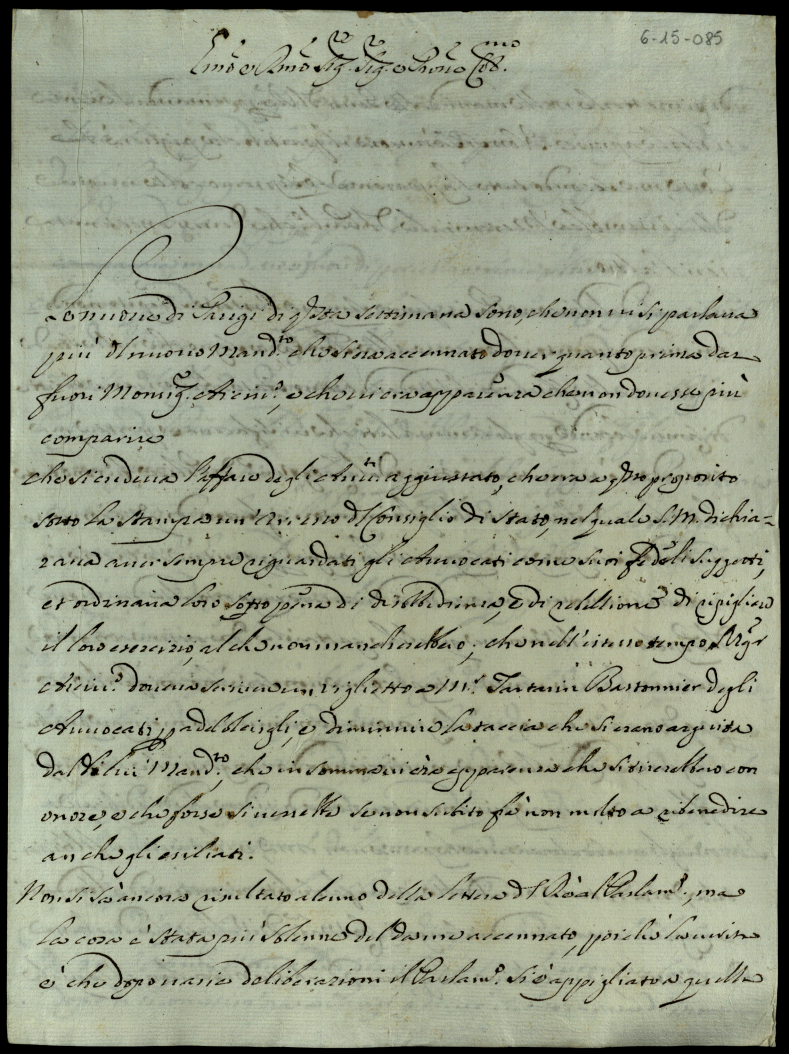 6-15-085
Emo e Rmo Sig. Sig. e Prone Col.mo
Le nuove di Parigi di qsta settimana sono, che non vi si parlava
più d'l nuovo Mand.to che s'era accennato dover quanto prima dar
fuori Monsig.r Arciv.o, e che vi era apparenza che non dovesse più
comparire
che si credeva l'affare degli Avv.ti aggiustato, che era a qsto proposito
sotto la stampa un'Arresto d'l Consiglio di Stato, nel quale S. M. dichia=
rava aver sempre riguardati gli Avvocati come suoi fedeli suggetti,
et ordinava loro sotto pena di disobbedienza, e di rebellione di ripigliare
il loro esercizio, al che non mancherebbero; che nell'istesso tempo Mgr
Arciv.o doveva scrivere un viglietto a M.r Tartarin Bastonnier degli
Avvocati, p addolcirgli, e diminuire la taccia che si erano arguita
dal di lui Mand.to, che in somma vi era apparenza che si tirerebbero con
onore, e che forse si verrebbe se non subito frà non molto a ribenedire
anche gli esiliati.
Non si sà ancora risultato alcuno della lettera d'l Rè al Parlam.o, ma
la cosa è stata più solenne del da me accennato, poichè la verità
è che dopo varie deliberazioni il Parlam.o si è appigliato a quella